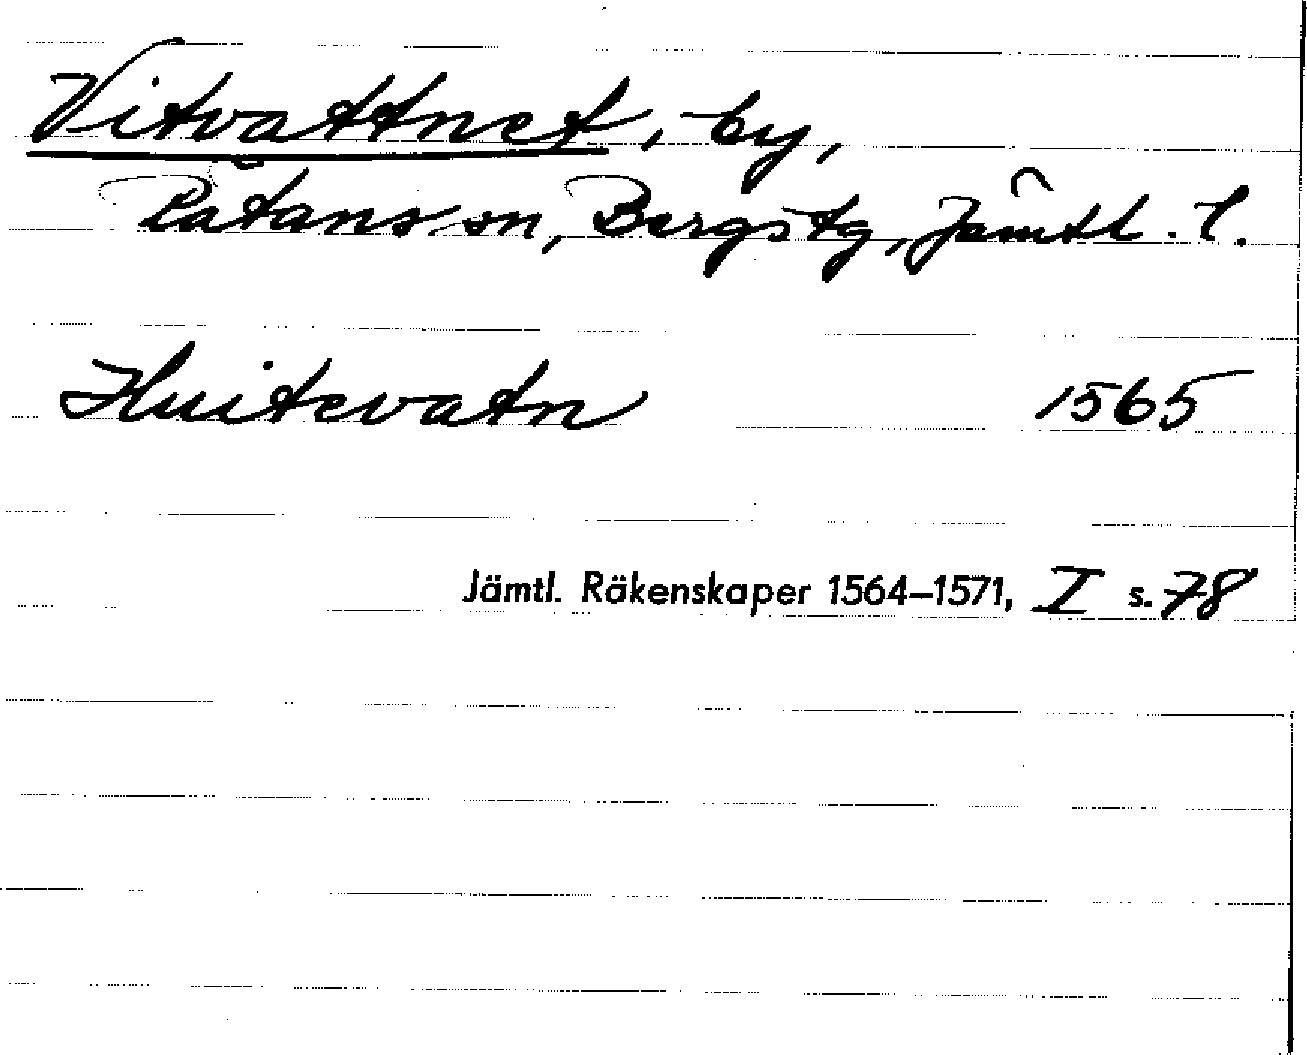 Vitvattnet, by,
Rätans sn, Bergs tg, Jämtl. l.
Huitevatn 1565
Jämtl. Räkenskaper 1564–1571, I s. 78